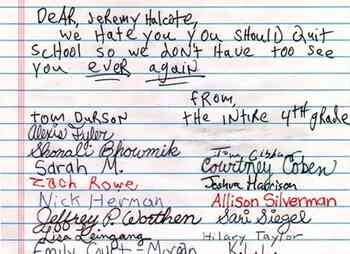 DEAR, Jeremy Halcote,
we Hate you you SHOULD Quit
SCHOOL so we DON'T HAVE TOO SEE
you ever again
FROM,
tom DURSON the INTIRE 4TH grade
Alexis Tyler
Shonali Bhowmik Tom
Sarah M. Courtney Cohen
Zach Rowe Joshua Harrison
Nick Herman Allison Silverman
Jeffrey P. Worthen Sari Siegel
Lisa Leingang Hilary Taylor
Emily Court-Morgan